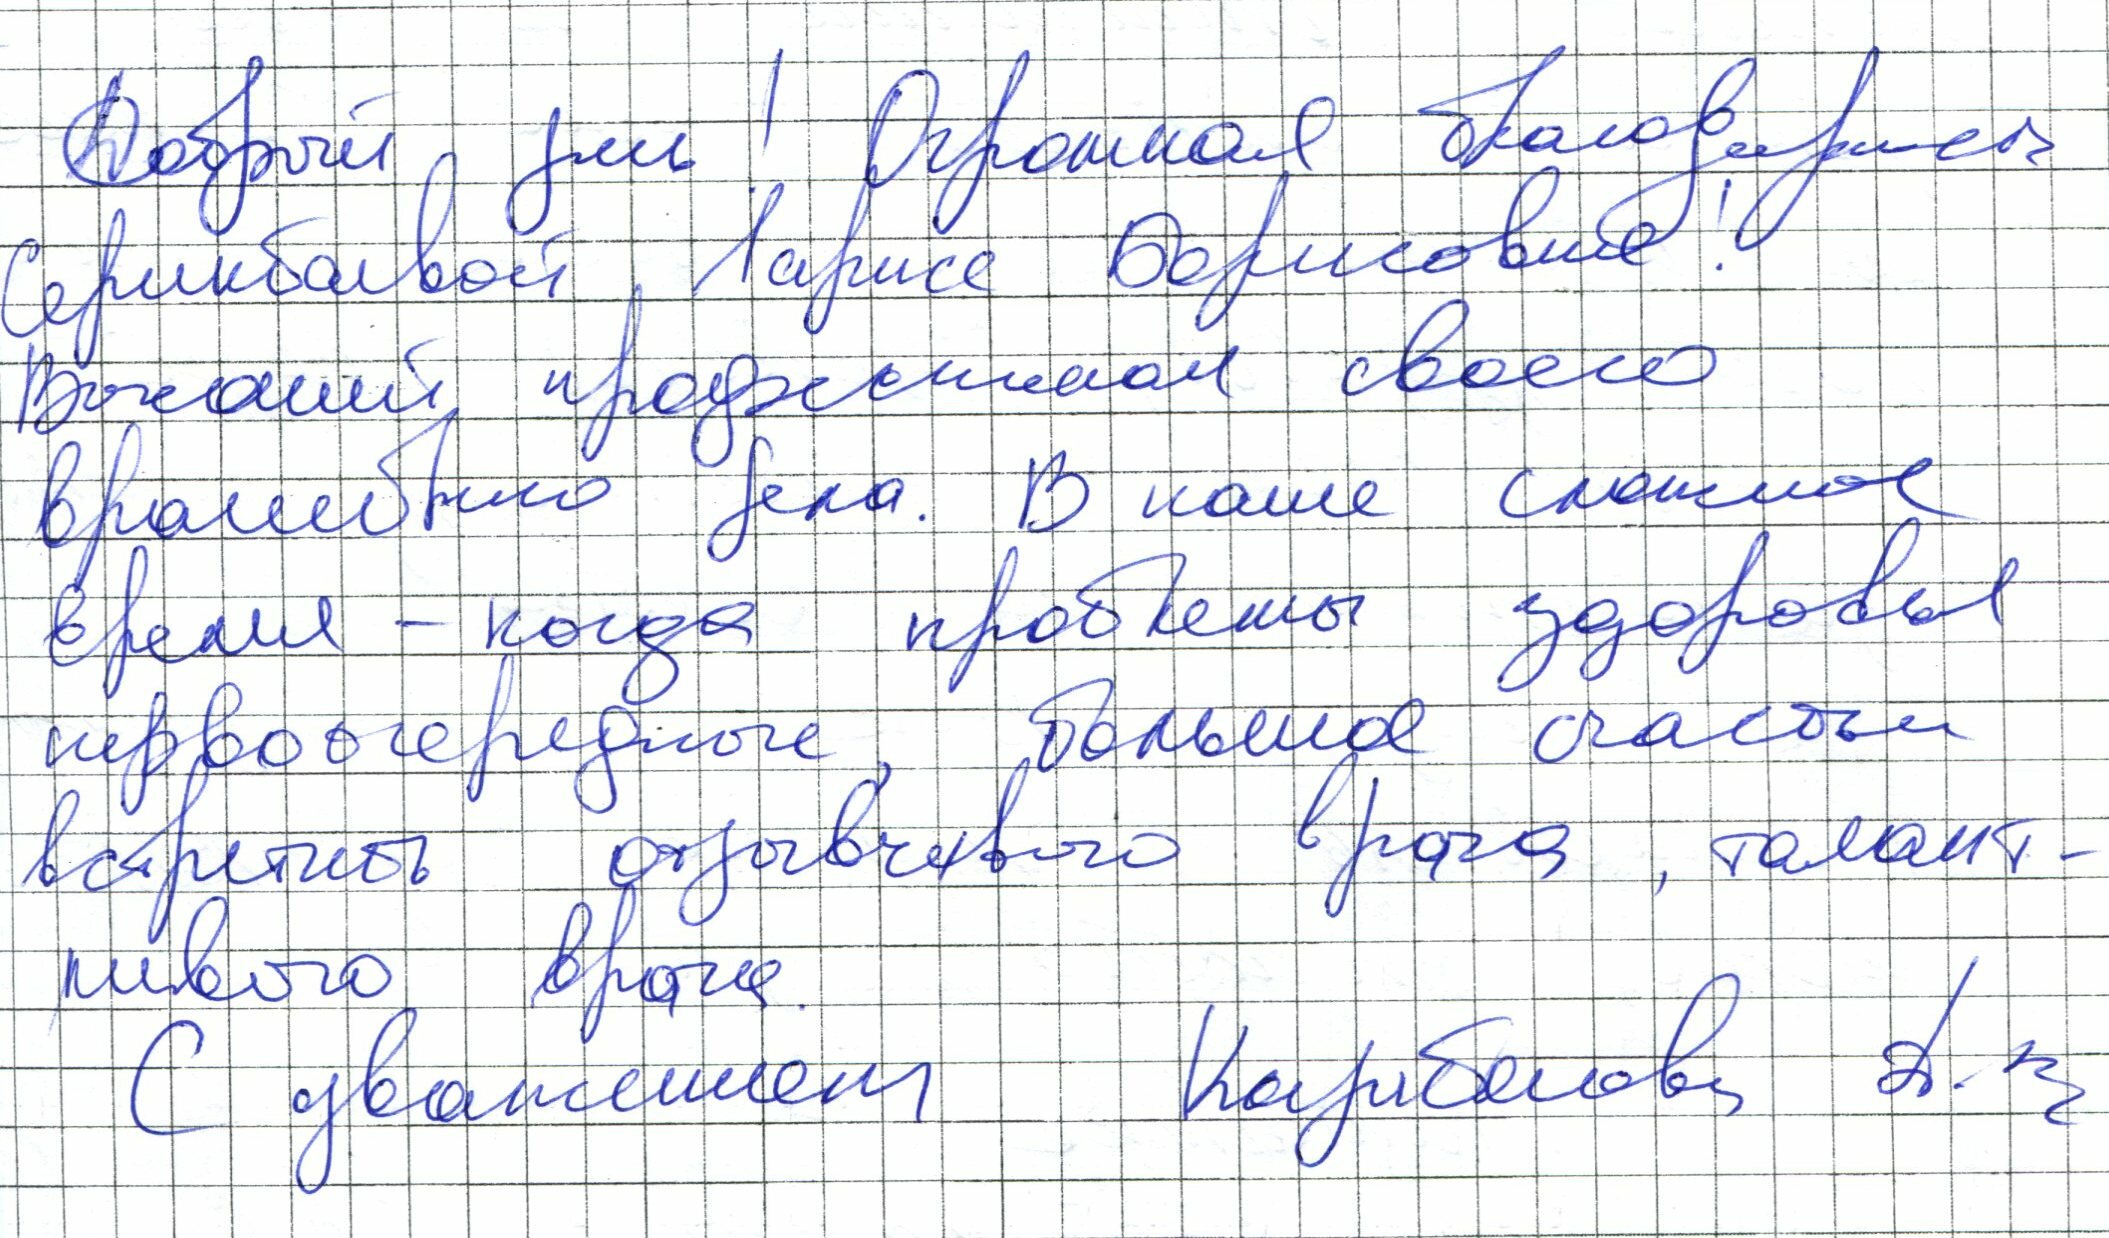 Добрый день! Огромная благодарность
Серикбаевой Ларисе Борисовне!
Высший профессионал своего
врачебного дела. В наше сложное
время – когда проблемы здоровья
первоочередные, большое счастье
встретить отзывчивого врача, талант-
ливого врача.
С уважением